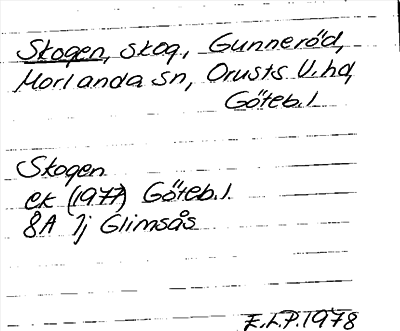 Skogen, skog, Gunneröd,
Morlanda sn, Orusts V. hd,
Göteb. l
Skogen
ek (1977) Göteb. l.
8A 1j Glimsås
E.L.P. 1978